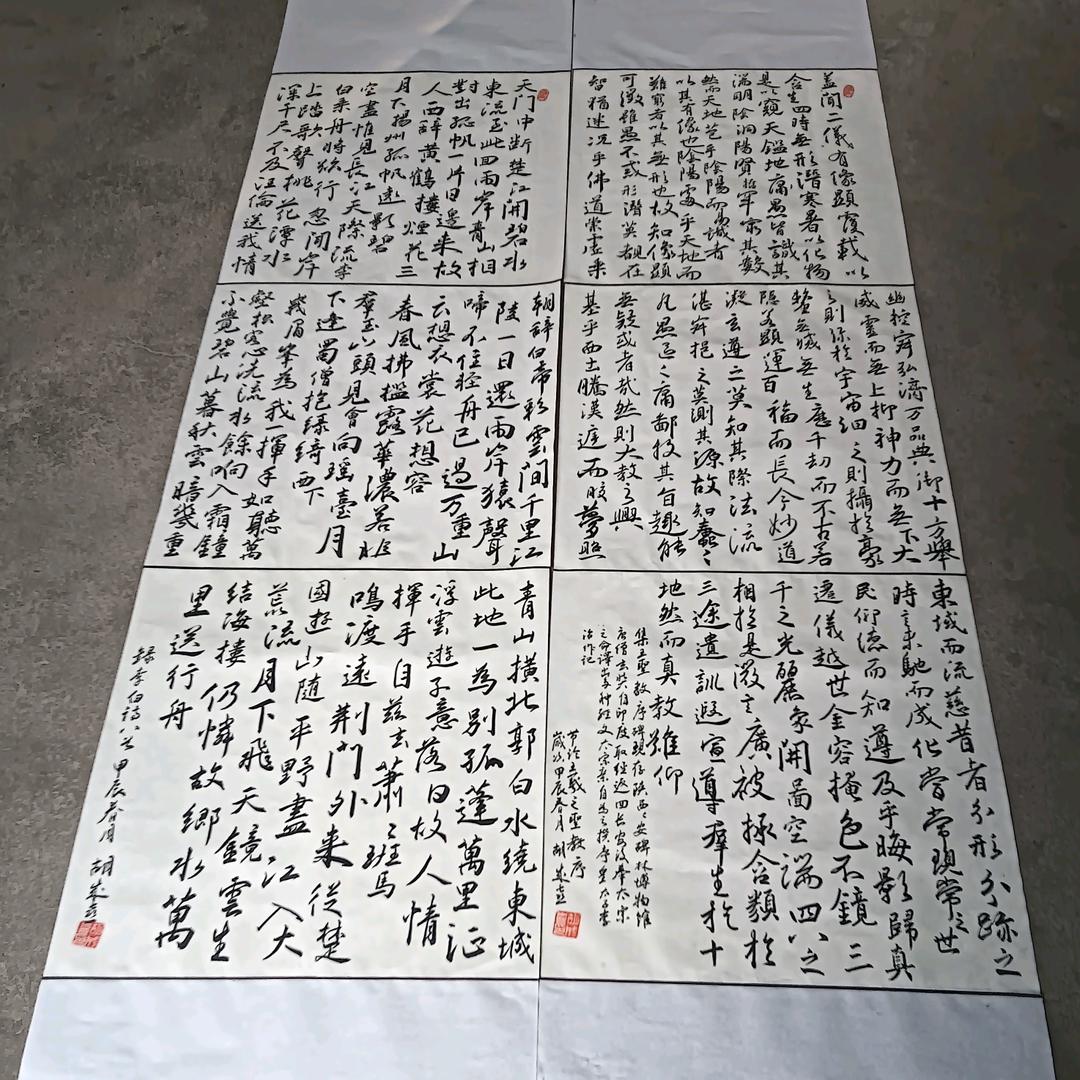 盖闻二儀有像顯覆載以
含生四時無形潛寒暑以化物
是以窺天鑑地庸愚皆識其
端明陰洞陽賢哲罕窮其數
然而天地苞乎陰陽而易識者
以其有像也陰陽處乎天地而
難窮者以其無形也故知像顯
可徵雖愚不惑形潛莫覩在
智猶迷況乎佛道崇虛乘
幽控寂弘濟万品典御十方舉
威靈而無上抑神力而無下大
之則弥於宇宙細之則攝於豪
釐無滅無生歷千劫而不古若
隱若顯運百福而長今妙道
凝玄遵之莫知其際法流
湛寂挹之莫測其源故知蠢々
凡愚區々庸鄙投其旨趣能
無疑或者哉然則大教之興
基乎西土騰漢庭而皎夢照
東域而流慈昔者分形分跡之
時言未馳而成化當常現常之世
民仰德而知遵及乎晦影歸真
遷儀越世金容掩色不鏡三
千之光麗象開圖空端四八之
相於是微言廣被拯含類於
三途遺訓遐宣導群生於十
地然而真教難仰
集王聖教序碑現存陝西西安碑林博物館
唐僧玄奘自印度取經返回長安後奉太宗
之命譯出多种經文太宗亲自為之撰序皇太子李
治作記
节临王羲之聖教序
歲次甲辰春月胡
天门中断楚江開碧水
東流至此回兩岸青山相
對出孤帆一片日邊来故
人西辭黄鶴樓煙花三
月下揚州孤帆遠影碧
空盡惟見長江天際流李
白乘舟將欲行忽聞岸
上踏歌聲桃花潭水
深千尺不及汪倫送我情
朝辭白帝彩雲間千里江
陵一日還兩岸猿聲
啼不住轻舟已過万重山
云想衣裳花想容
春風拂檻露華濃若非
群玉山頭見會向瑶臺月
下逢蜀僧抱绿绮西下
峨眉峯為我一揮手如聽萬
壑松客心洗流水餘响入霜鐘
不覺碧山暮秋雲暗幾重
青山橫北郭白水繞東城
此地一為別孤蓬萬里征
浮雲遊子意落日故人情
揮手自兹去蕭々班馬
鳴渡遠荆門外来從楚
國遊山随平野盡江入大
荒流月下飛天鏡雲生
結海樓仍憐故鄉水萬
里送行舟
録李白詩八首甲辰春月胡